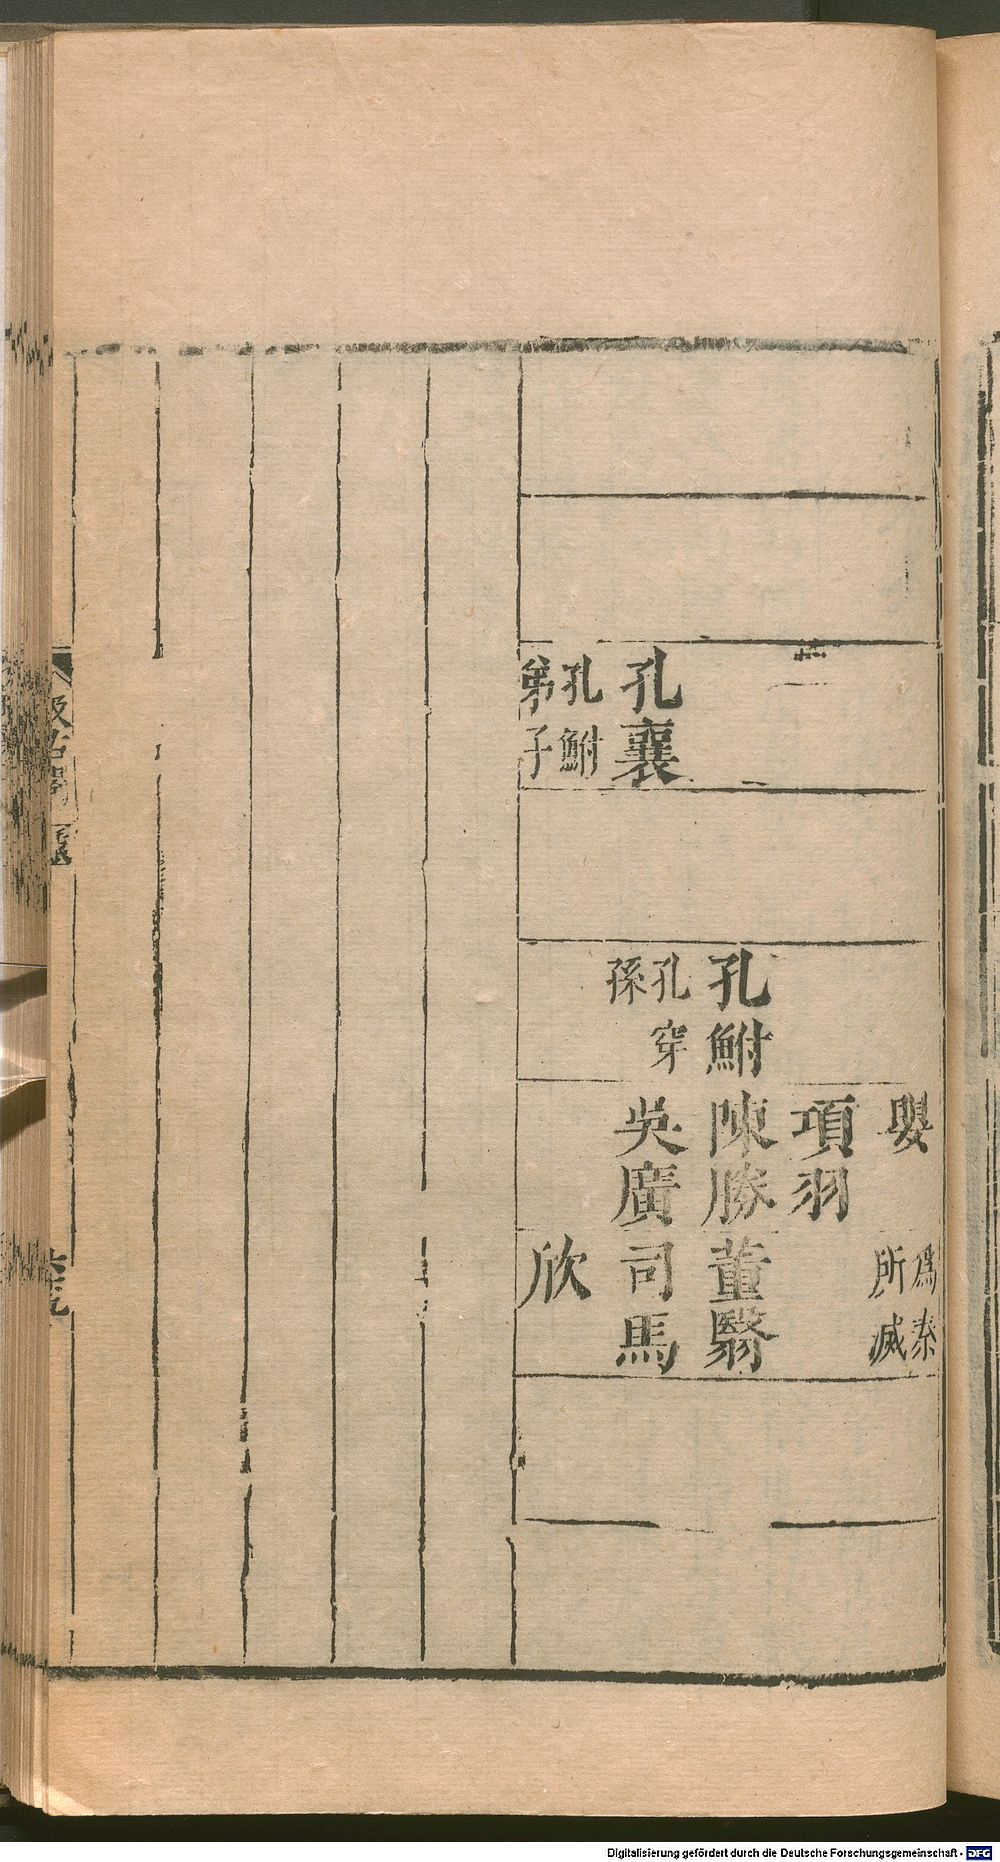 孔襄
孔鮒
弟子
孔鮒
孔穿
孫
嬰
項羽
陳勝
吳廣
為秦
所滅
董翳
司馬
欣
汲古閣
Digitalisierung gefördert durch die Deutsche Forschungsgemeinschaft - DFG